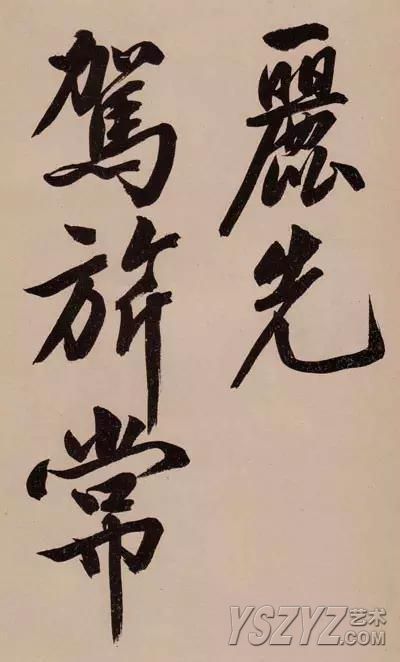 麗先
駕旂常
YSZYZ艺术.COM